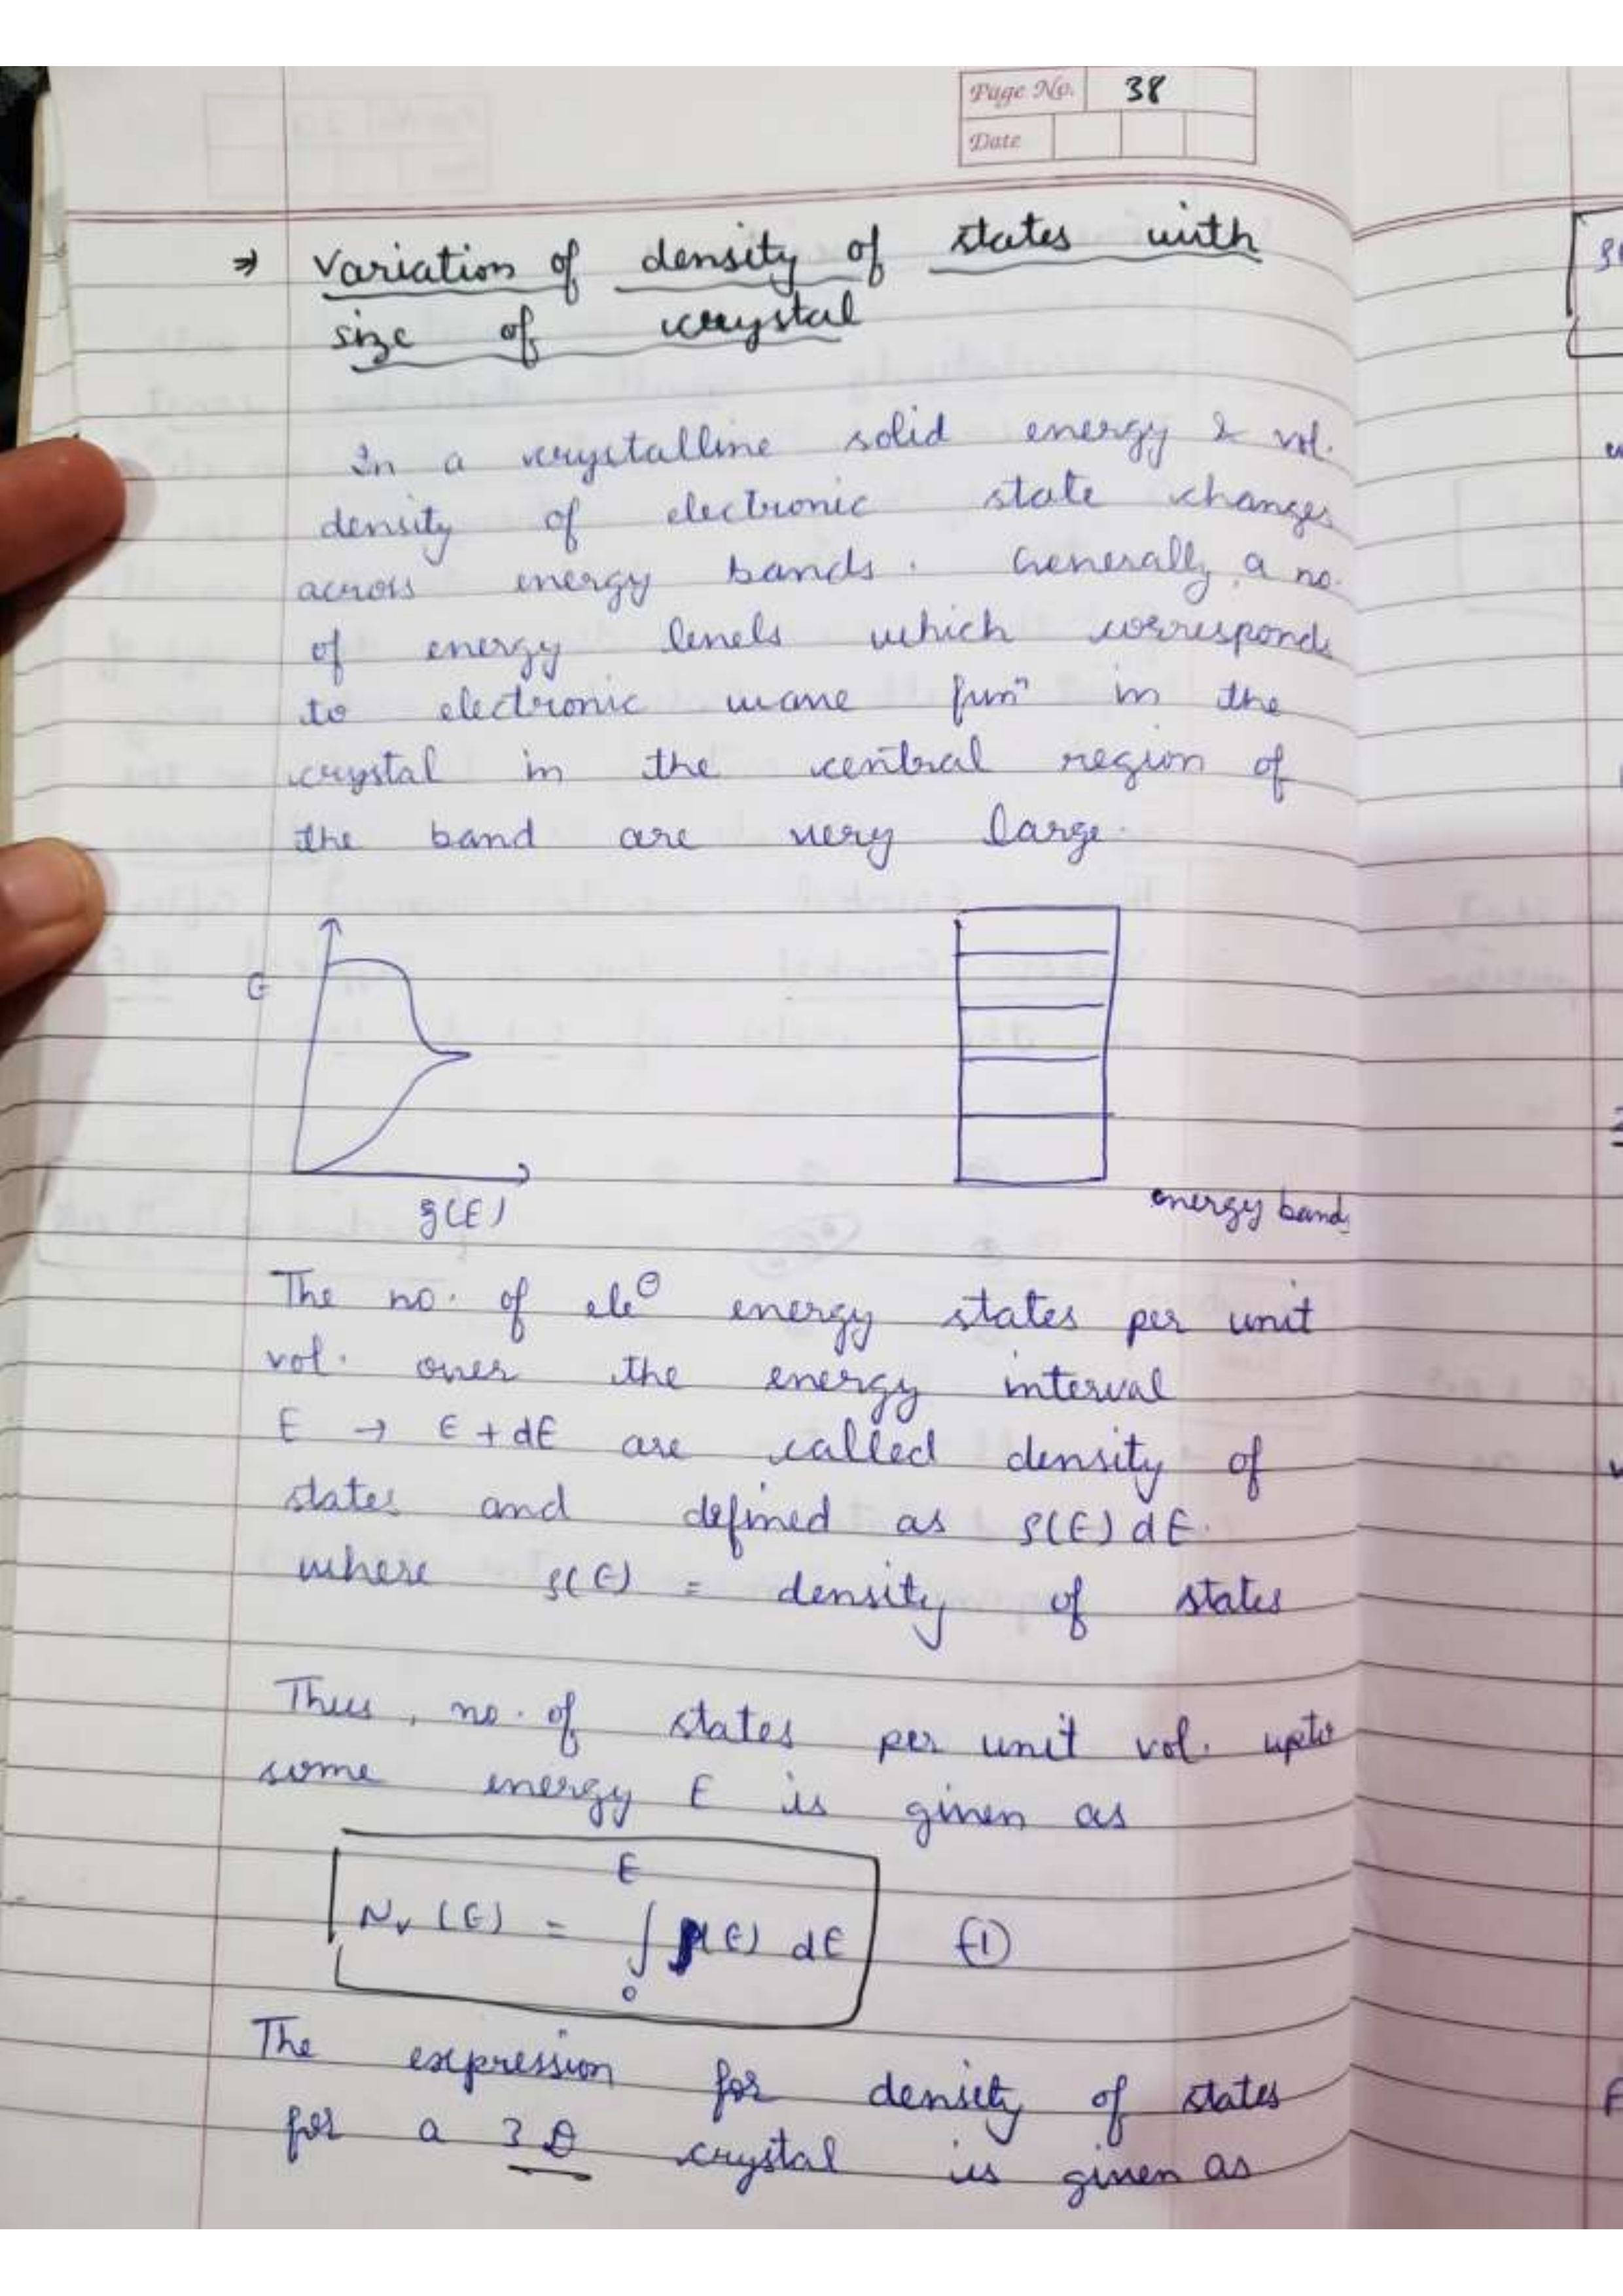 Page No. 38
Date
⇒ Variation of density of states with
size of crystal
In a crystalline solid energy & vol.
density of electronic state changes
across energy bands. Generally, a no.
of energy levels which corresponds
to electronic wave funⁿ in the
crystal in the central region of
the band are very large.
E
ρ(E)
energy bands
The no. of ele⊖ energy states per unit
vol. over the energy interval
E → E + dE are called density of
states and defined as ρ(E) dE.
where ρ(E) = density of states
Thus, no. of states per unit vol. upto
some energy E is given as
E
Nv (E) = ∫ ρ(E) dE ①
0
The expression for density of states
for a 3D crystal is given as